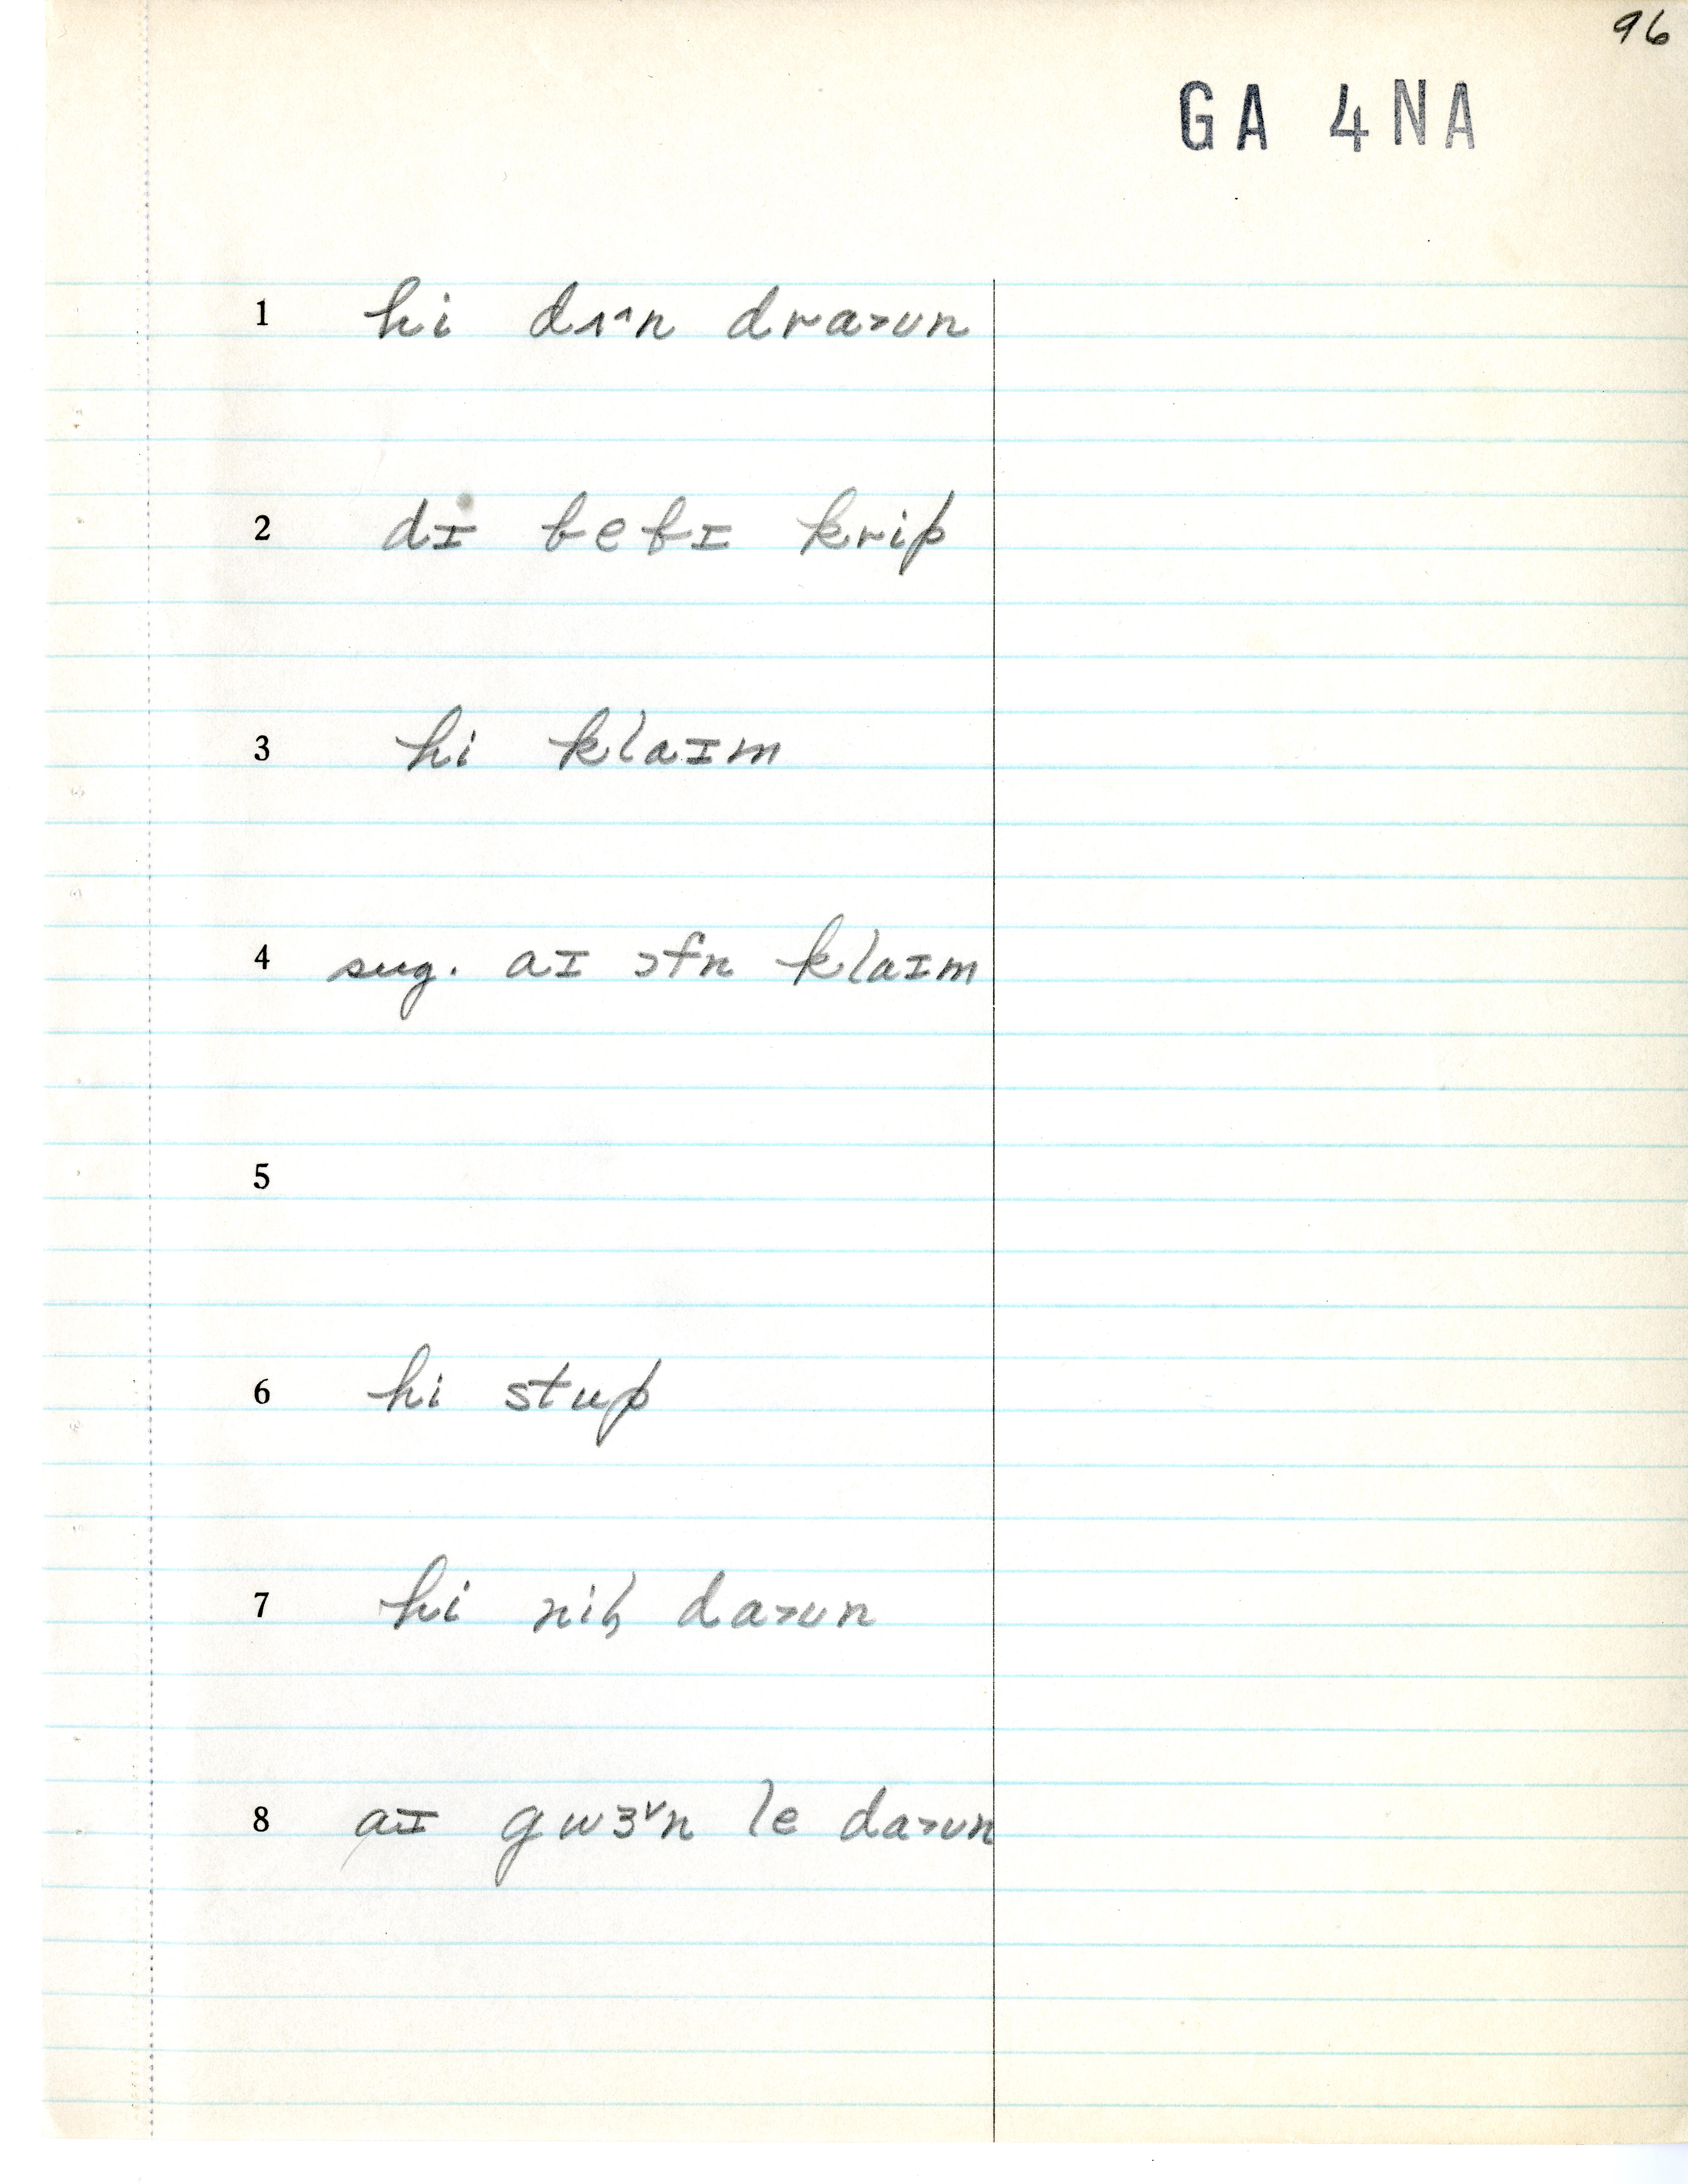 96
GA 4NA
1 hi dʌ^n dra>ʊn
2 dɪ bebɪ krip
3 hi klaɪm
4 sug. aɪ ɔfn klaɪm
5
6 hi stup
7 hi nil̥ da>ʊn
8 aɪ gwɜ˅n le da>ʊn